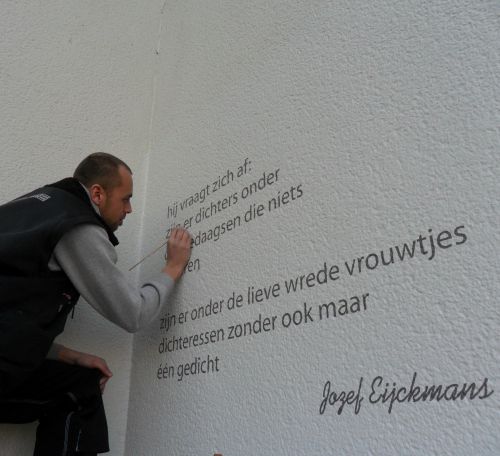 hij vraagt zich af:
zijn er dichters onder
die niets
zijn er onder de lieve wrede vrouwtjes
dichteressen zonder ook maar
één gedicht
Jozef Eijckmans